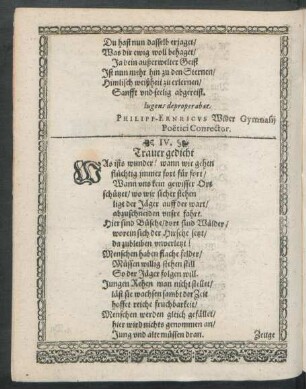 Du hast nun dasselb erjaget/
Was dir ewig woll behaget/
Ja dein außerwelter Geist
Ist nun mehr hin zu den Sternen/
Himlisch weißheit zu erlernen/
Sanfft und seelig abgereist.
lugens deproperabat.
PHILIPP-ERNRICVS Weber Gymnasij
Poëtici Conrector.
IV.
Trauer gedicht
WAs ists wunder/ wann wir gehen
flüchtig immer fort für fort/
Wann uns kein gewisser Ort
schützet/ wo wir sicher stehen
ligt der Jäger auff der wart/
abzuschneiden unser fahrt.
Hier sind Büsche/ dort sind Wälder/
worein sich der Hirsche setzt/
da zubleiben unverletzt!
Menschen haben flache felder/
Müssen willig stehen still
So der Jäger folgen will.
Jungen Rehen man nicht stellet/
läst sie wachsen sambt der Zeit
hoffet reiche fruchbarkeit/
Menschen werden gleich gefället/
hier wird nichts genommen an/
Jung und alte müssen dran.
Zeuge